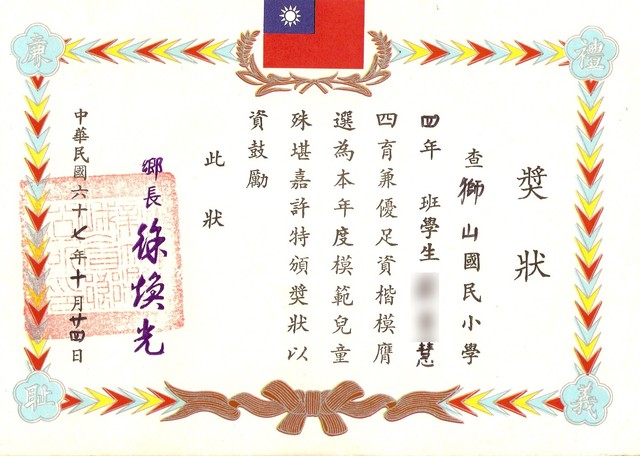 獎狀
查獅山國民小學
四年 班學生 慧
四育兼優足資楷模膺
選為本年度模範兒童
殊堪嘉許特頒獎狀以
資鼓勵
此狀
鄉長徐煥光
中華民國六十七年十月廿四日
禮
義
廉
耻